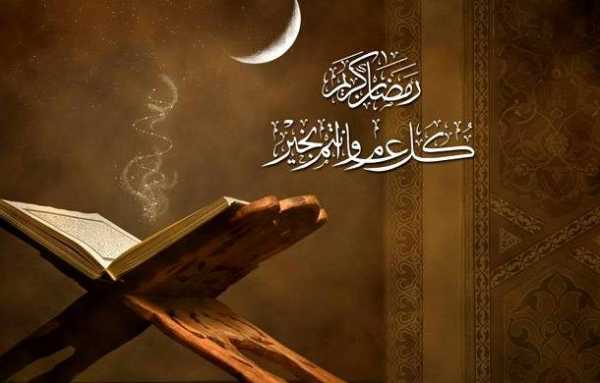 رَمَضَان كَرِيم
كُل عام وانتم بخَيْر